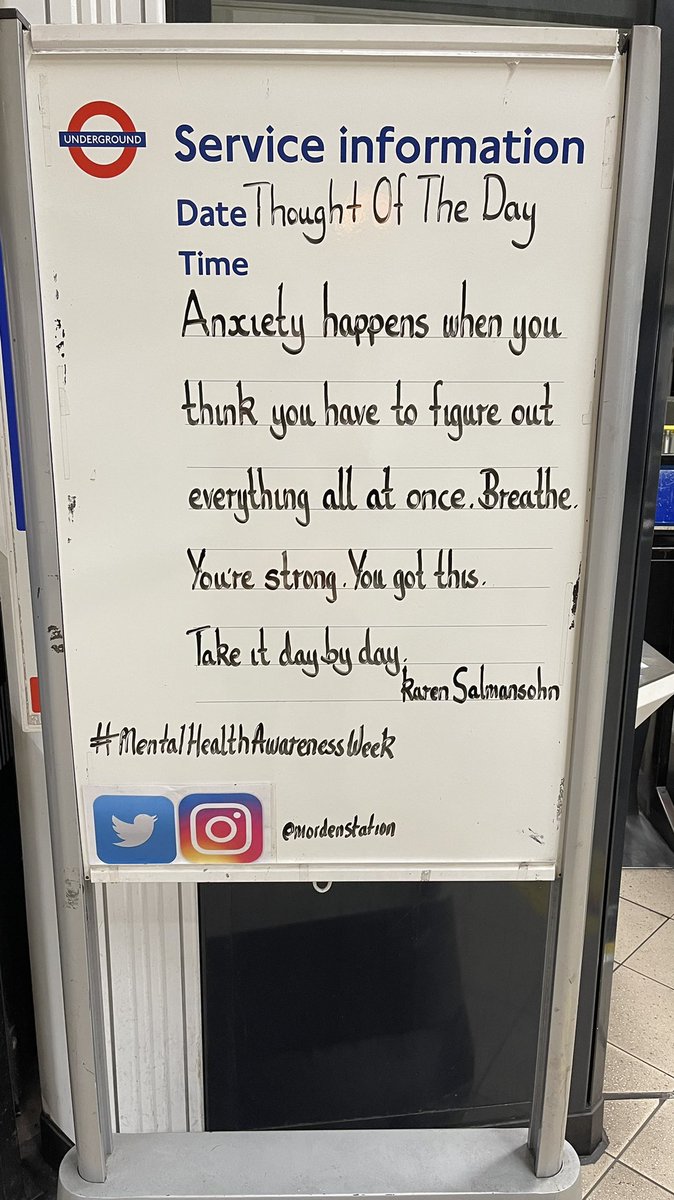 UNDERGROUND
Service information
Date Thought Of The Day
Time
Anxiety happens when you
think you have to figure out
everything all at once. Breathe.
You're strong. You got this.
Take it day by day.
Karen Salmansohn
#MentalHealthAwarenessWeek
@mordenstation